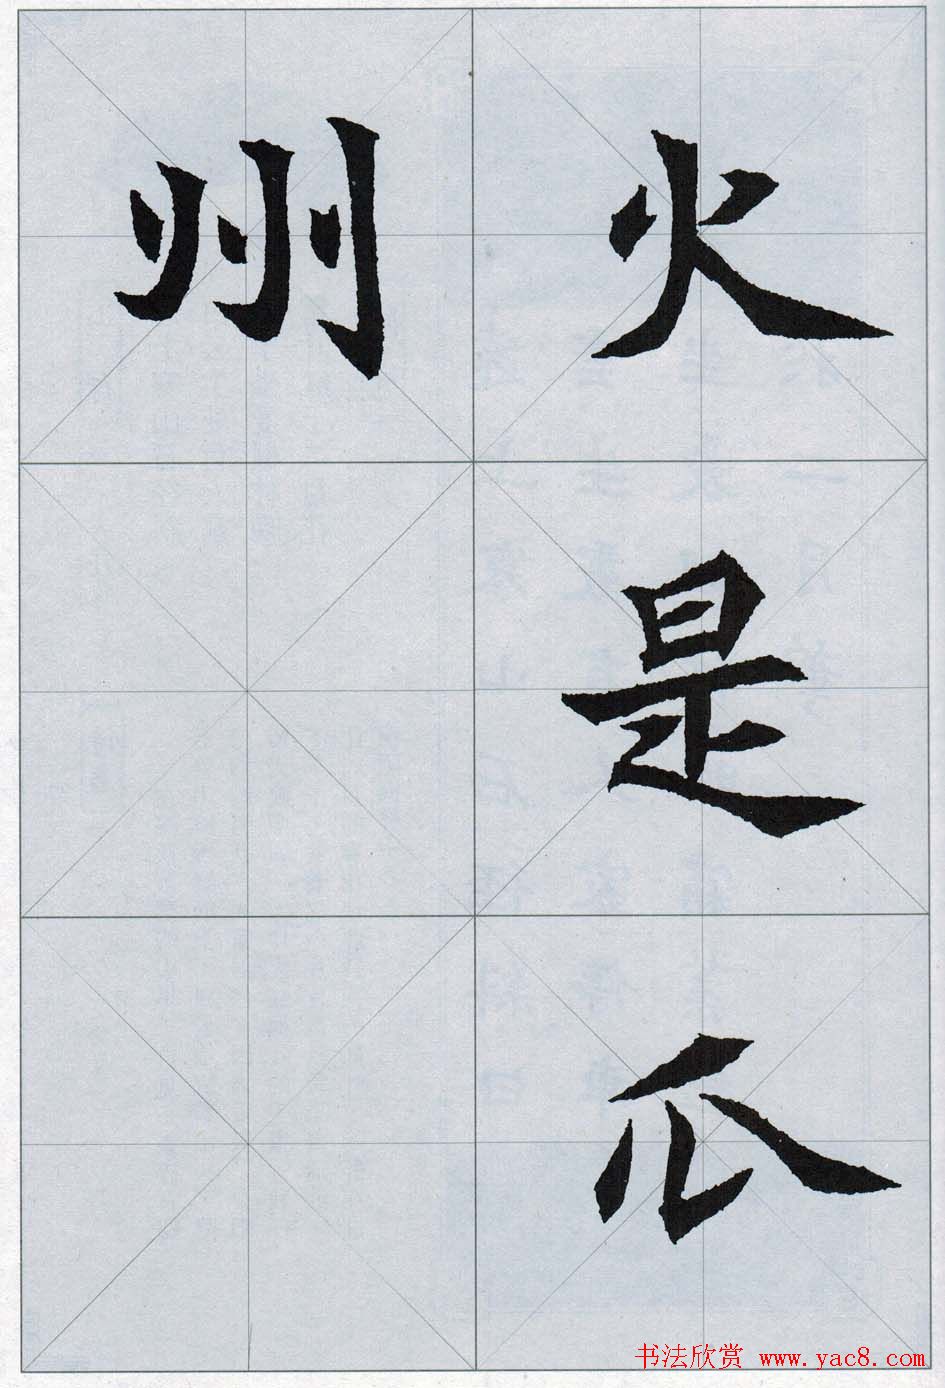 火是瓜
州
书法欣赏 www.yac8.com